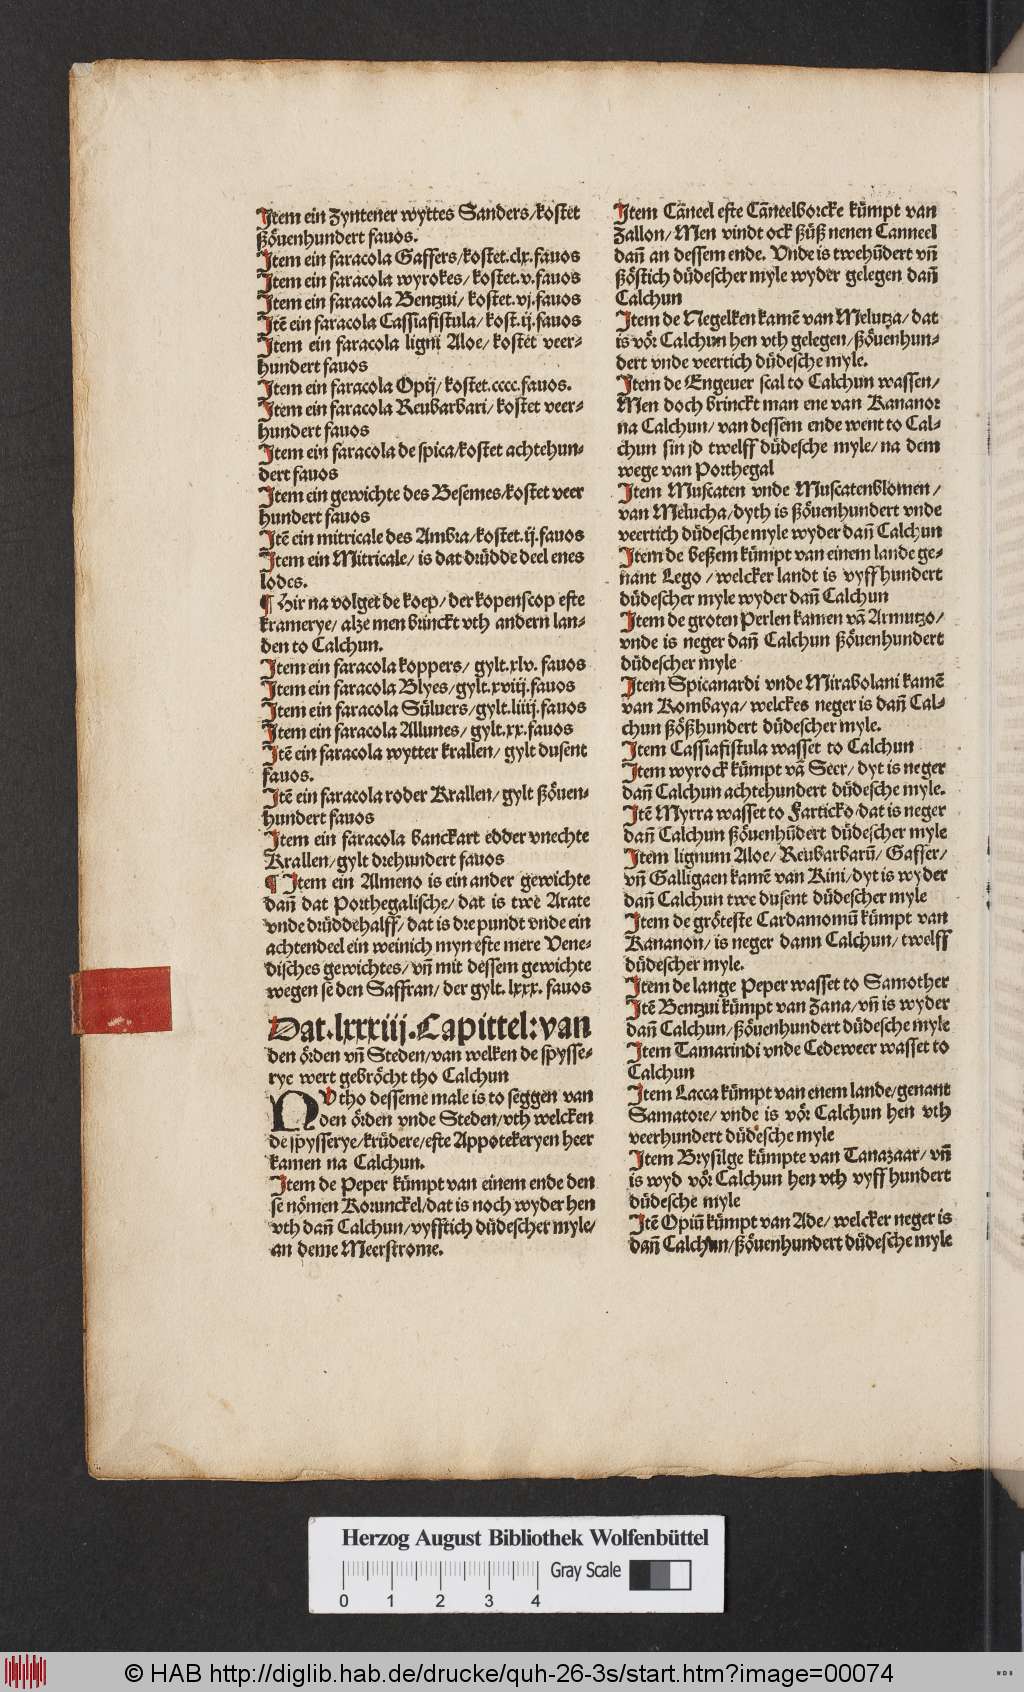 Item ein Zyntener wyttes Sanders/kostet
ßöuenhundert fauos.
Item ein faracola Gaffers/kostet.clx.fauos
Item ein faracola wyrokes/kostet.v.fauos
Item ein faracola Bentzui/kostet.vj.fauos
Itē ein faracola Cassiafistula/kost.ij.fauos
Item ein faracola ligni Aloe/kostet veer⸗
hundert fauos
Item ein faracola Opij/kostet.cccc.fauos.
Item ein faracola Reubarbari/kostet veer⸗
hundert fauos
Item ein faracola de spica/kostet achtehun⸗
dert fauos
Item ein gewichte des Besemes/kostet veer
hundert fauos
Itē ein mitricale des Ambra/kostet.ij.fauos
Item ein Mitricale/is dat drüdde deel enes
lodes.
¶ Hir na volget de koep/der kopenscop efte
kramerye/alze men brinckt vth andern lan⸗
den to Calchun.
Item ein faracola koppers/gylt.xlv.fauos
Item ein faracola Blyes/gylt.xviij.fauos
Item ein faracola Süluers/gylt.liiij.fauos
Item ein faracola Allunes/gylt.xx.fauos
Itē ein faracola wytter krallen/gylt dusent
fauos.
Itē ein faracola roder Krallen/gylt ßöuen⸗
hundert fauos
Item ein faracola banckart edder vnechte
Krallen/gylt drehundert fauos
¶ Item ein Almeno is ein ander gewichte
dañ dat Porthegalische/dat is twe Arate
vnde drüddehalff/dat is dre pundt vnde ein
achtendeel ein weinich myn efte mere Vene⸗
disches gewichtes/vñ mit dessem gewichte
wegen se den Saffran/der gylt.lxxx.fauos
Dat.lxxxiij.Capittel:van
den örden vñ Steden/van welken de spysse⸗
rye wert gebröcht tho Calchun
NV tho desseme male is to seggen van
den örden vnde Steden/vth welcken
de spysserye/krüdere/efte Appotekeryen heer
kamen na Calchun.
Item de Peper kümpt van einem ende den
se nömen Korunckel/dat is noch wyder hen
vth dañ Calchun/vyfftich düdescher myle/
an deme Meerstrome.
Item Cāneel efte Cāneelborcke kümpt van
Zallon/Men vindt ock ßüß nenen Canneel
dañ an dessem ende. Vnde is twehūdert vñ
ßöstich düdescher myle wyder gelegen dañ
Calchun
Item de Negelken kamē van Melutza/dat
is vör Calchun hen vth gelegen/ßöuenhun⸗
dert vnde veertich düdesche myle.
Item de Engeuer scal to Calchun wassen/
Men doch brinckt man ene van Kananor
na Calchun/van dessem ende went to Cal⸗
chun sin jd twelff düdesche myle/na dem
wege van Porthegal
Item Muscaten vnde Muscatenblomen/
van Melucha/dyth is ßöuenhundert vnde
veertich düdesche myle wyder dañ Calchun
Item de beßem kümpt van einem lande ge⸗
nant Lego/welcker landt is vyff hundert
düdescher myle wyder dañ Calchun
Item de groten Perlen kamen vā Armutzo/
vnde is neger dañ Calchun ßöuenhundert
düdescher myle
Item Spicanardi vnde Mirabolani kamē
van Kombaya/welckes neger is dañ Cal⸗
chun ßößhundert düdescher myle.
Item Cassiafistula wasset to Calchun
Item wyrock kümpt vā Seer/dyt is neger
dañ Calchun achtehundert düdesche myle.
Itē Myrra wasset to Farticko/dat is neger
dañ Calchun ßöuenhūdert düdescher myle
Item lignum Aloe/Reubarbarū/Gaffer/
vñ Galligaen kamē van Kini/dyt is wyder
dañ Calchun twe dusent düdescher myle
Item de gröteste Cardamomū kümpt van
Kananon/is neger dann Calchun/twelff
düdescher myle.
Item de lange Peper wasset to Samother
Itē Bentzui kümpt van Zana/vñ is wyder
dañ Calchun/ßöuenhundert düdesche myle
Item Tamarindi vnde Cedeweer wasset to
Calchun
Item Lacca kümpt van enem lande/genant
Samatore/vnde is vör Calchun hen vth
veerhundert düdesche myle
Item Brysilge kümpte van Tanazaar/vñ
is wyd vör Calchun hen vth vyff hundert
düdesche myle
Itē Opiū kümpt van Ade/welcker neger is
dañ Calchun/ßöuenhundert düdesche myle
Herzog August Bibliothek Wolfenbüttel
Gray Scale
0 1 2 3 4
© HAB http://diglib.hab.de/drucke/quh-26-3s/start.htm?image=00074